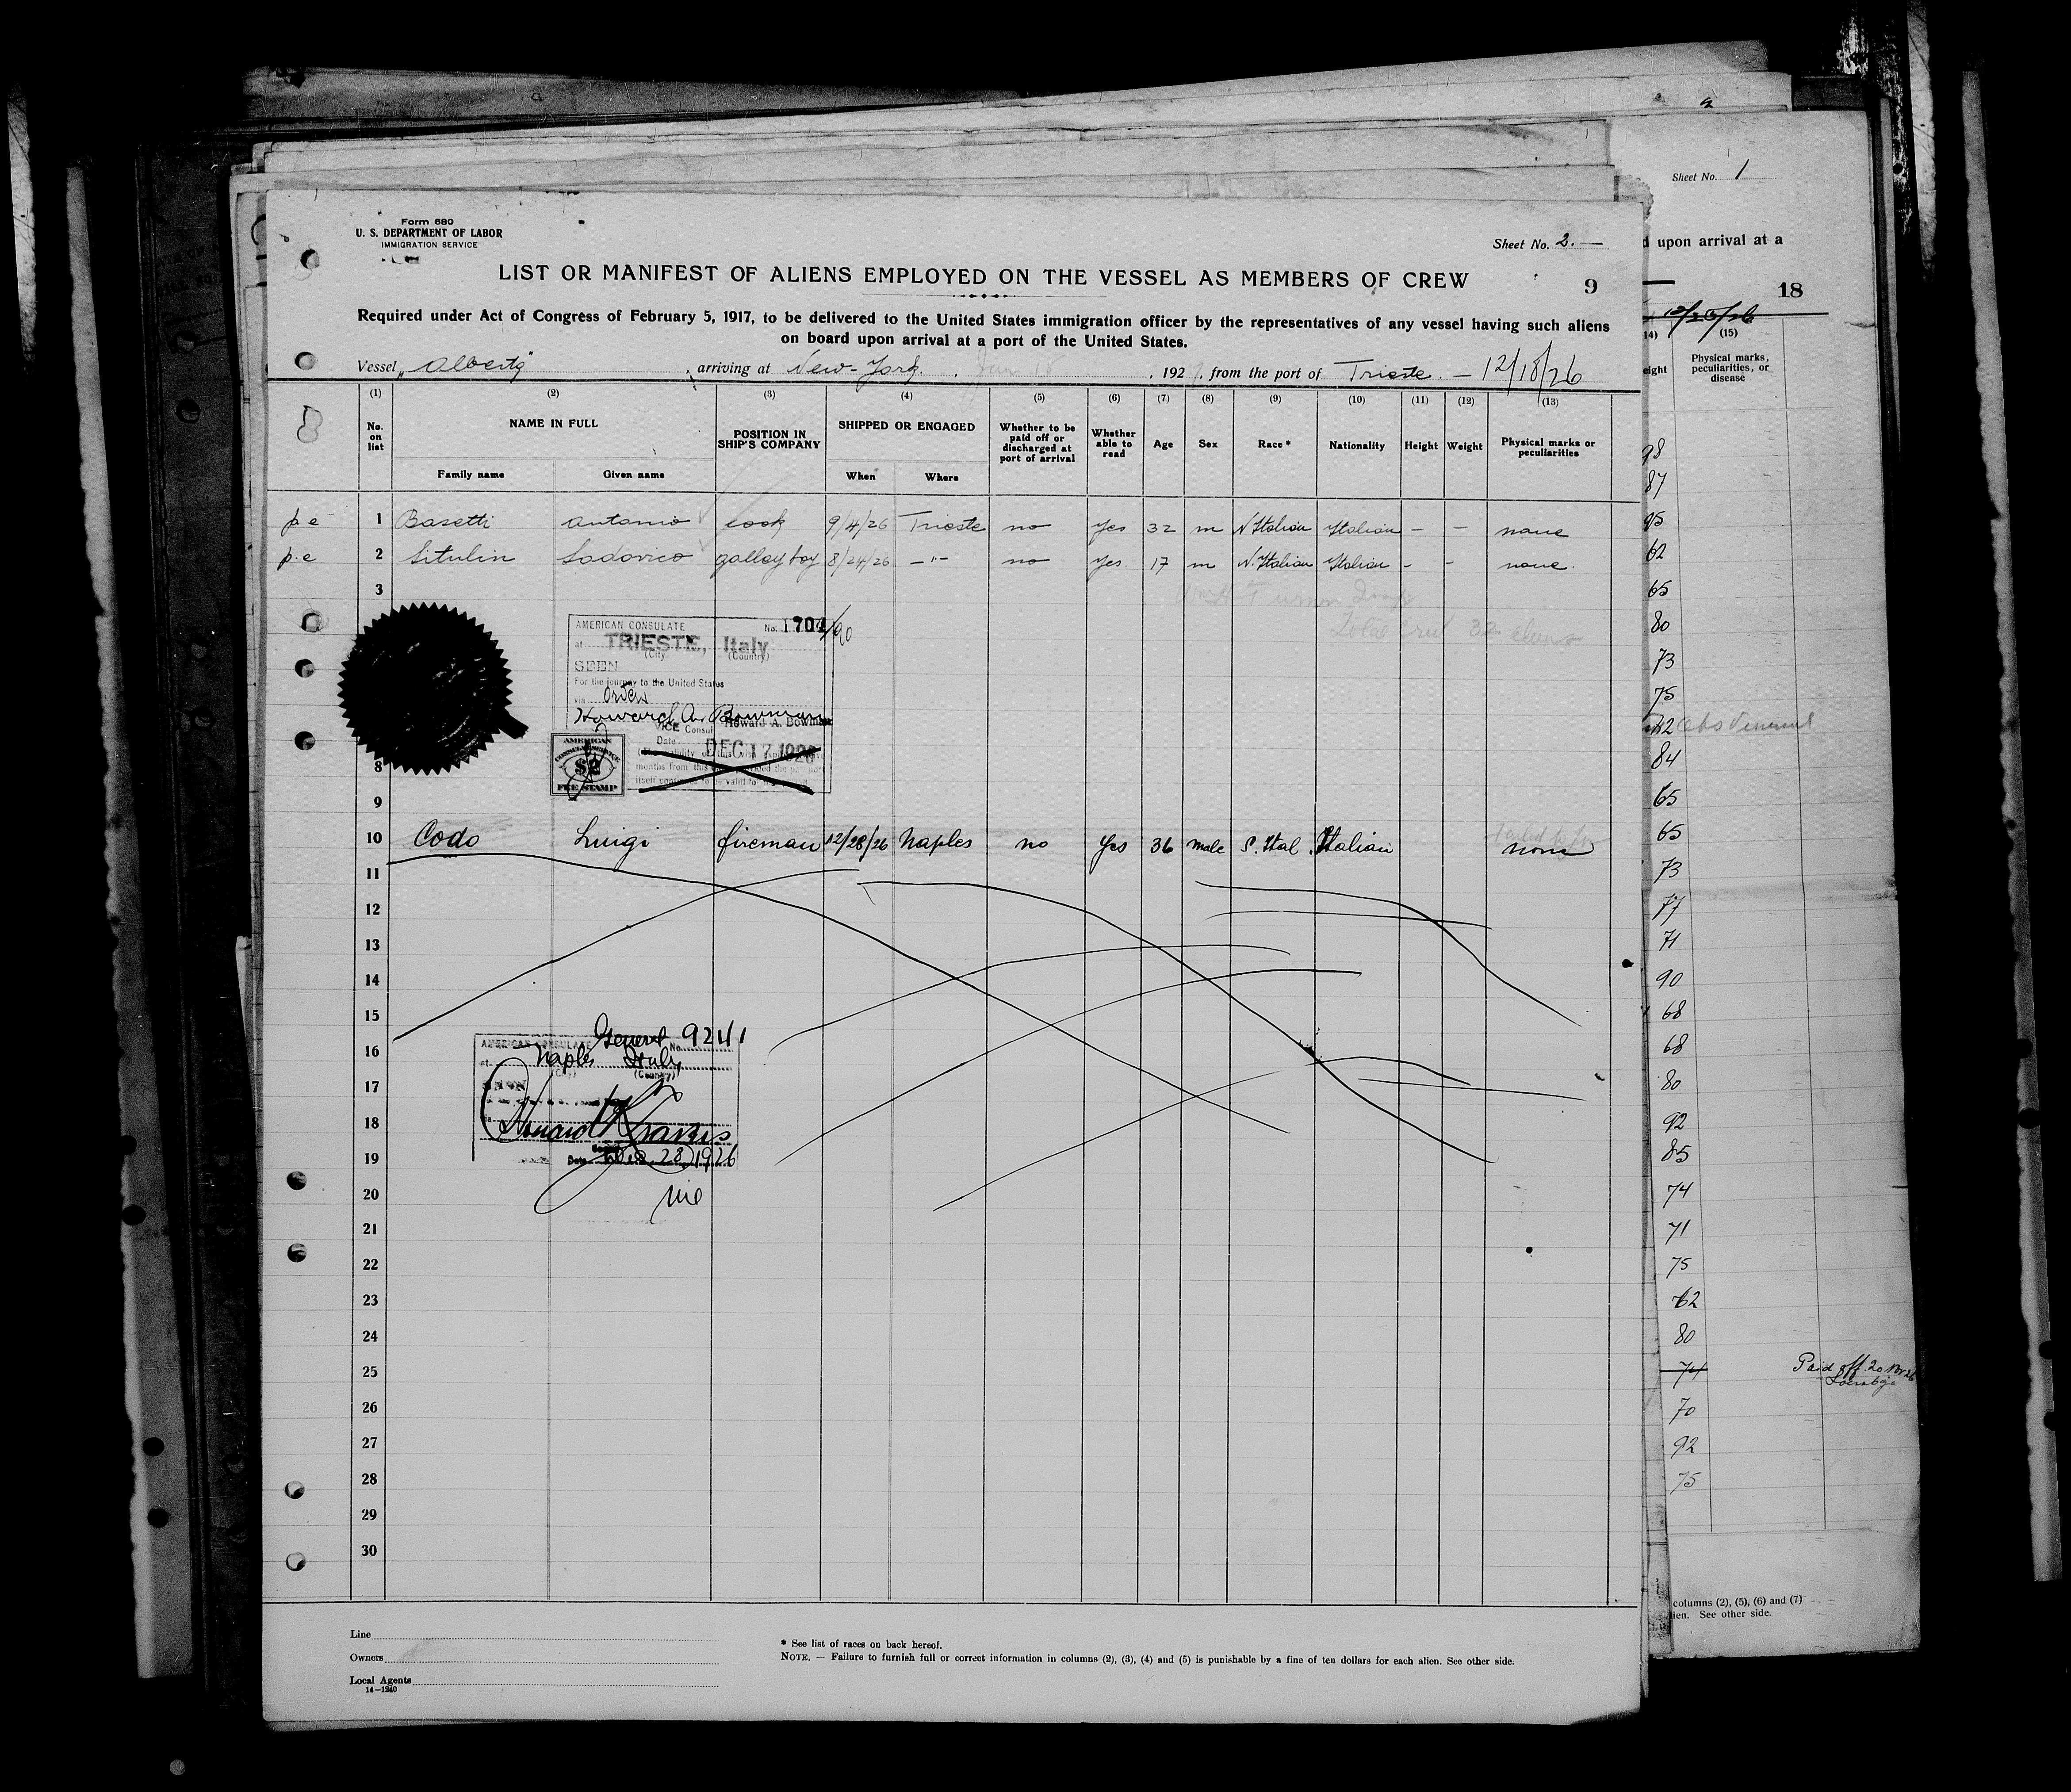 Sheet No. 1
d upon arrival at a
18
12/26/26
(14) (15)
eight Physical marks, peculiarities, or disease
Form 680
U. S. DEPARTMENT OF LABOR
IMMIGRATION SERVICE
Sheet No. 2.—
LIST OR MANIFEST OF ALIENS EMPLOYED ON THE VESSEL AS MEMBERS OF CREW
9
Required under Act of Congress of February 5, 1917, to be delivered to the United States immigration officer by the representatives of any vessel having such aliens
on board upon arrival at a port of the United States.
Vessel „Alberta", arriving at New-York. , Jan 15, 192 , from the port of Trieste. — 12/18/26
(1) (2) (3) (4) (5) (6) (7) (8) (9) (10) (11) (12) (13)
No. on list NAME IN FULL POSITION IN SHIP'S COMPANY SHIPPED OR ENGAGED Whether to be paid off or discharged at port of arrival Whether able to read Age Sex Race* Nationality Height Weight Physical marks or peculiarities
Family name Given name When Where
p e 1 Basetti Antonio cook 9/4/26 Trieste no Yes 32 m N Italian Italian – – none
p.e 2 Situlin Lodovico galley boy 8/24/26 —"— no Yes 17 m N. Italian Italian - - none.
3
Total crew 32 aliens
AMERICAN CONSULATE No. 1704/90
at TRIESTE, Italy
(City) (Country)
SEEN
For the journey to the United States
via Orden
Howard A. Bowman
VICE Consul Howard A. Bowman
Date DEC 17 1926
months from this
itself
AMERICAN
CONSULAR SERVICE
$2
FEE STAMP
8
9
10 Codo Luigi fireman 12/28/26 Naples no Yes 36 male S. Ital. Italian none
11
12
13
14
15
16
17
18
19
20
21
22
23
24
25
26
27
28
29
30
General 9241
AMERICAN CONSULATE No.
at Naples Italy
(City) (Country)
SEEN
Date Dec. 28, 1926
Line
Owners
Local Agents
14—1240
* See list of races on back hereof.
NOTE. — Failure to furnish full or correct information in columns (2), (3), (4) and (5) is punishable by a fine of ten dollars for each alien. See other side.
98
87
95
62
65
80
73
75
72
84
65
65
73
77
71
90
68
68
80
92
85
74
71
75
62
80
74 Paid off 20
70
92
75
columns (2), (5), (6) and (7)
ien. See other side.